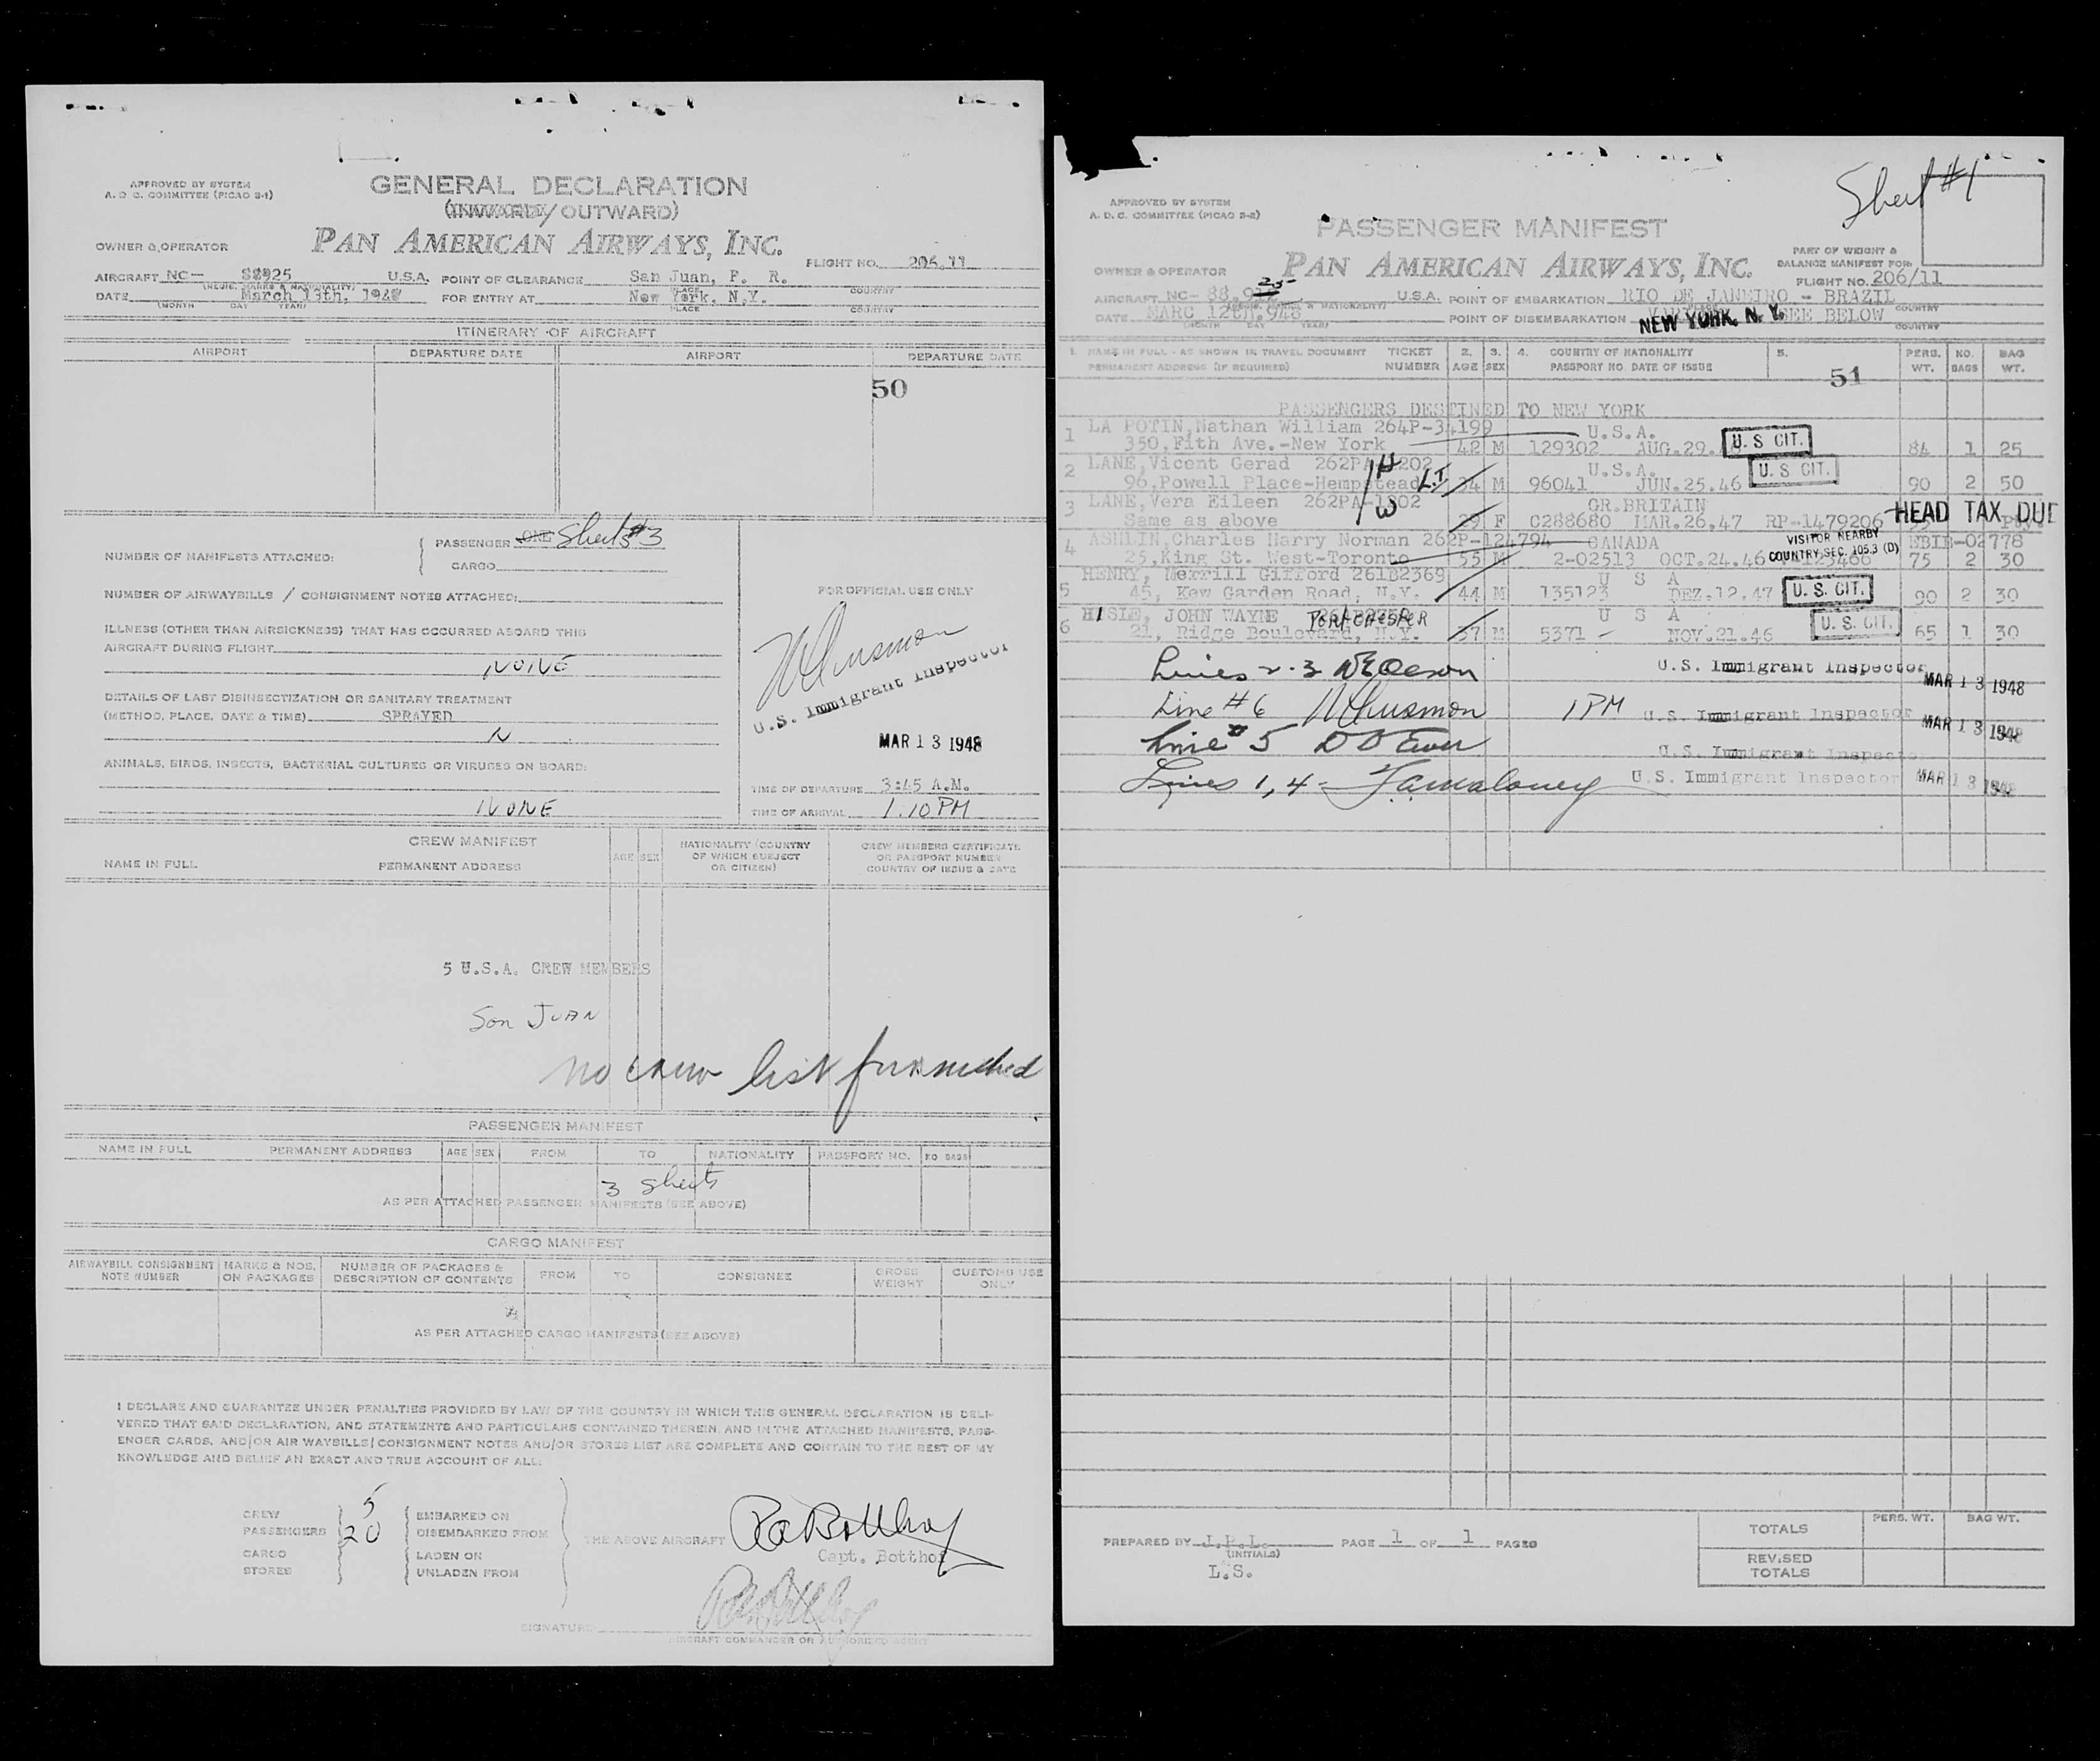 APPROVED BY SYSTEM
A. D. C. COMMITTEE (PICAO 3-1)
GENERAL DECLARATION
(INWARD/OUTWARD)
OWNER & OPERATOR
PAN AMERICAN AIRWAYS, INC.
FLIGHT NO. 206.11
AIRCRAFT NC- 88925 U.S.A. POINT OF CLEARANCE San Juan, P. R.
(REGIS. MARKS & NATIONALITY) PLACE COUNTRY
DATE March 13th, 1948 FOR ENTRY AT New York, N.Y.
(MONTH DAY YEAR) PLACE COUNTRY
ITINERARY OF AIRCRAFT
AIRPORT DEPARTURE DATE AIRPORT DEPARTURE DATE
50
NUMBER OF MANIFESTS ATTACHED: PASSENGER ONE Sheets #3
CARGO
NUMBER OF AIRWAYBILLS / CONSIGNMENT NOTES ATTACHED:
ILLNESS (OTHER THAN AIRSICKNESS) THAT HAS OCCURRED ABOARD THIS
AIRCRAFT DURING FLIGHT
NONE
DETAILS OF LAST DISINSECTIZATION OR SANITARY TREATMENT
(METHOD, PLACE, DATE & TIME) SPRAYED
N
ANIMALS, BIRDS, INSECTS, BACTERIAL CULTURES OR VIRUSES ON BOARD:
NONE
FOR OFFICIAL USE ONLY
U.S. Immigrant Inspector
MAR 13 1948
TIME OF DEPARTURE 3:45 A.M.
TIME OF ARRIVAL 1.10 PM
CREW MANIFEST
NAME IN FULL PERMANENT ADDRESS AGE SEX NATIONALITY (COUNTRY OF WHICH SUBJECT OR CITIZEN) CREW MEMBERS CERTIFICATE OR PASSPORT NUMBER COUNTRY OF ISSUE & DATE
5 U.S.A. CREW MEMBERS
San JUAN
no crew list furnished
PASSENGER MANIFEST
NAME IN FULL PERMANENT ADDRESS AGE SEX FROM TO NATIONALITY PASSPORT NO. NO BAGS
3 sheets
AS PER ATTACHED PASSENGER MANIFESTS (SEE ABOVE)
CARGO MANIFEST
AIRWAYBILL CONSIGNMENT NOTE NUMBER MARKS & NOS. ON PACKAGES NUMBER OF PACKAGES & DESCRIPTION OF CONTENTS FROM TO CONSIGNEE GROSS WEIGHT CUSTOMS USE ONLY
AS PER ATTACHED CARGO MANIFESTS (SEE ABOVE)
I DECLARE AND GUARANTEE UNDER PENALTIES PROVIDED BY LAW OF THE COUNTRY IN WHICH THIS GENERAL DECLARATION IS DELI-
VERED THAT SAID DECLARATION, AND STATEMENTS AND PARTICULARS CONTAINED THEREIN, AND IN THE ATTACHED MANIFESTS, PASS-
ENGER CARDS, AND/OR AIR WAYBILLS/CONSIGNMENT NOTES AND/OR STORES LIST ARE COMPLETE AND CONTAIN TO THE BEST OF MY
KNOWLEDGE AND BELIEF AN EXACT AND TRUE ACCOUNT OF ALL:
CREW 5 EMBARKED ON
PASSENGERS 20 DISEMBARKED FROM
THE ABOVE AIRCRAFT
CARGO LADEN ON
STORES UNLADEN FROM
Capt. Botthof
SIGNATURE
AIRCRAFT COMMANDER OR AUTHORIZED AGENT
Sheet #1
APPROVED BY SYSTEM
A. D. C. COMMITTEE (PICAO 3-2)
PASSENGER MANIFEST
PART OF WEIGHT &
BALANCE MANIFEST FOR:
OWNER & OPERATOR
PAN AMERICAN AIRWAYS, INC.
FLIGHT NO. 206/11
AIRCRAFT NC- 88.912 25 U.S.A. POINT OF EMBARKATION RIO DE JANEIRO - BRAZIL
(REGIS. MARKS & NATIONALITY) PLACE COUNTRY
DATE MARC 12th.948 POINT OF DISEMBARKATION NEW YORK, N. Y. SEE BELOW
(MONTH DAY YEAR) COUNTRY
1. NAME IN FULL - AS SHOWN IN TRAVEL DOCUMENT TICKET NUMBER 2. AGE 3. SEX 4. COUNTRY OF NATIONALITY 5. PERS. WT. NO. BAGS BAG WT.
PERMANENT ADDRESS (IF REQUIRED) PASSPORT NO. DATE OF ISSUE
51
PASSENGERS DESTINED TO NEW YORK
1 LA POTIN, Nathan William 264P-34199 U.S.A.
350, Fith Ave.-New York 42 M 129302 AUG.29. U. S CIT. 84 1 25
2 LANE, Vicent Gerad 262PA U.S.A.
96, Powell Place-Hempstead L.I 34 M 96041 JUN.25.46 U. S CIT. 90 2 50
3 LANE, Vera Eileen 262PA-1802 GR.BRITAIN
Same as above 29 F C288680 MAR.26,47 RP-1479206 HEAD TAX DUE
H
W
4 ASHLIN, Charles Harry Norman 262P-124794 CANADA VISITOR NEARBY EBIE-02778
25, King St. West-Toronto 55 M 2-02513 OCT.24.46 COUNTRY, SEC. 105.3 (D) 75 2 30
HENRY, Merrill Gifford 261B2369 U S A
5 45, Kew Garden Road, N.Y. 44 M 135123 DEZ.12.47 U. S. CIT. 90 2 30
HISLE, JOHN WAYNE PORT CHESTER U S A
6 21, Ridge Boulevard, N.Y. 37 M 5371 - NOV.21.46 U. S. CIT. 65 1 30
Lines 2-3 U.S. Immigrant Inspector MAR 13 1948
Line #6 1PM U.S. Immigrant Inspector MAR 13 1948
Line #5 U.S. Immigrant Inspector
Lines 1, 4 - Famaloney U.S. Immigrant Inspector MAR 13 1948
PREPARED BY J.P.L. PAGE 1 OF 1 PAGES
(INITIALS)
L.S.
PERS. WT. BAG WT.
TOTALS
REVISED TOTALS